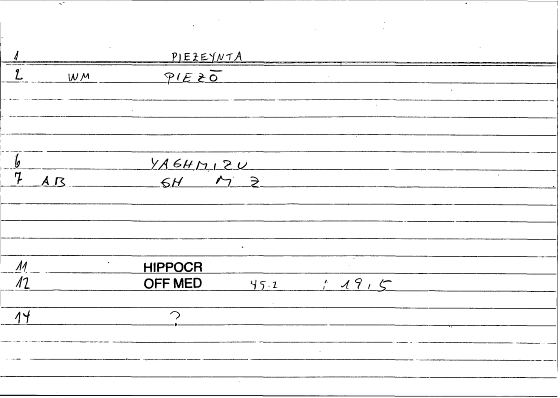 1 PIEZEYNTA
2 WM PIEZŌ
6 YAGHMIZU
7 AB GH M Z
11 HIPPOCR
12 OFF MED 45-2 : 19,5
14 ?